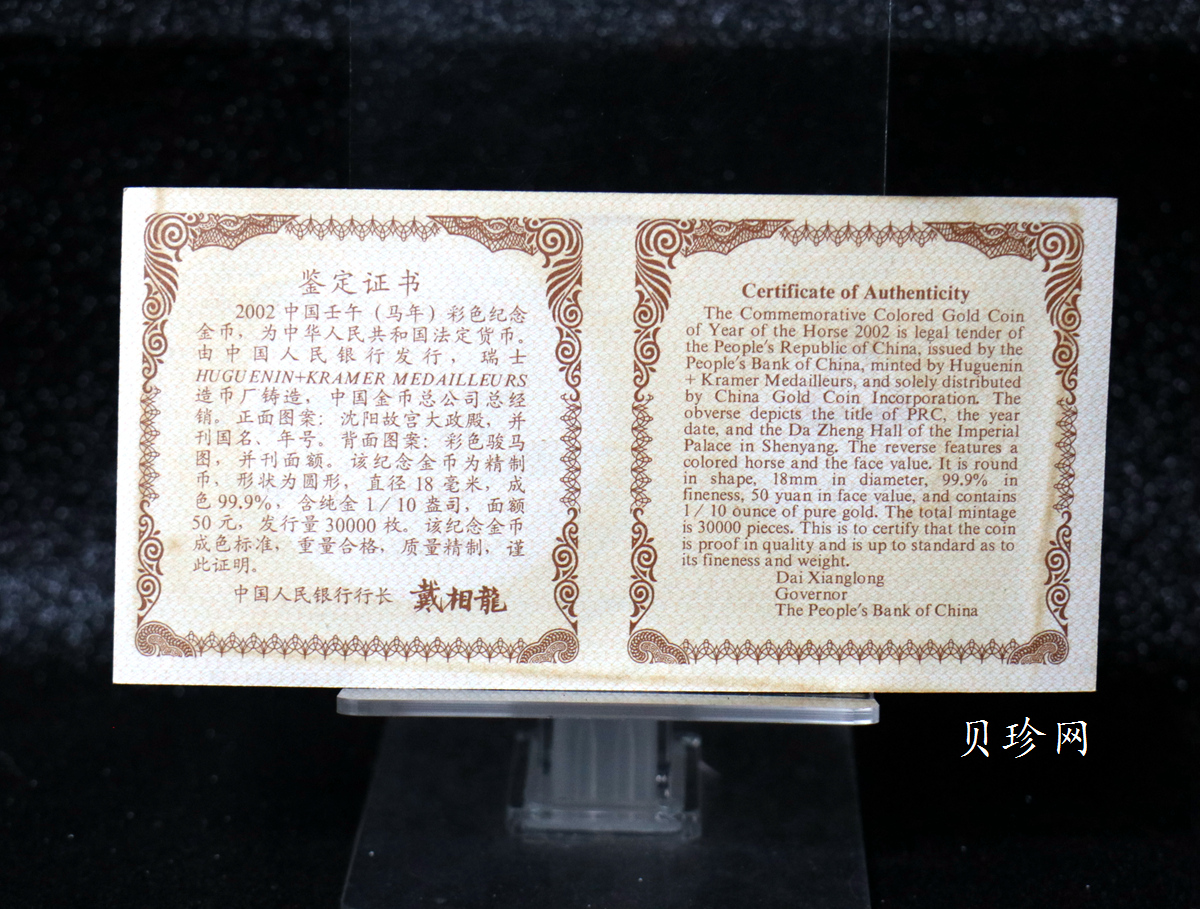 鉴定证书
2002 中国壬午（马年）彩色纪念
金币，为中华人民共和国法定货币。
由中国人民银行发行，瑞士
HUGUENIN+KRAMER MEDAILLEURS
造币厂铸造，中国金币总公司总经
销。正面图案：沈阳故宫大政殿，并
刊国名、年号。背面图案：彩色骏马
图，并刊面额。该纪念金币为精制
币，形状为圆形，直径 18 毫米，成
色 99.9%，含纯金 1／10 盎司，面额
50 元，发行量 30000 枚。该纪念金币
成色标准，重量合格，质量精制，谨
此证明。
中国人民银行行长 戴相龍
Certificate of Authenticity
The Commemorative Colored Gold Coin
of Year of the Horse 2002 is legal tender of
the People's Republic of China, issued by the
People's Bank of China, minted by Huguenin
+ Kramer Medailleurs, and solely distributed
by China Gold Coin Incorporation. The
obverse depicts the title of PRC, the year
date, and the Da Zheng Hall of the Imperial
Palace in Shenyang. The reverse features a
colored horse and the face value. It is round
in shape, 18mm in diameter, 99.9% in
fineness, 50 yuan in face value, and contains
1 / 10 ounce of pure gold. The total mintage
is 30000 pieces. This is to certify that the coin
is proof in quality and is up to standard as to
its fineness and weight.
Dai Xianglong
Governor
The People's Bank of China
贝珍网